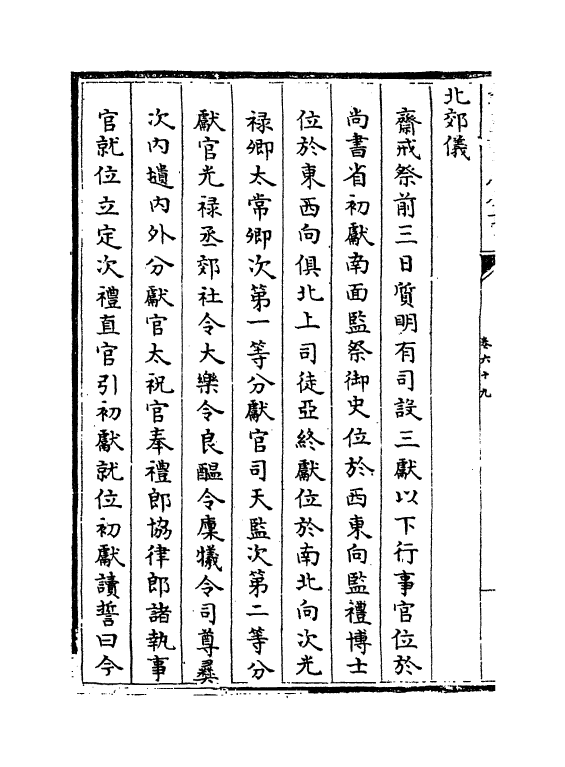 卷六十九
北郊儀
齋戒祭前三日質明有司設三獻以下行事官位於
尚書省初獻南面監祭御史位於西東向監禮博士
位於東西向俱北上司徒亞終獻位於南北向次光
禄卿太常卿次第一等分獻官司天監次第二等分
獻官光禄丞郊社令大樂令良醖令廩犧令司尊彞
次内壝内外分獻官太祝官奉禮郎協律郎諸執事
官就位立定次禮直官引初獻就位初獻讀誓曰今